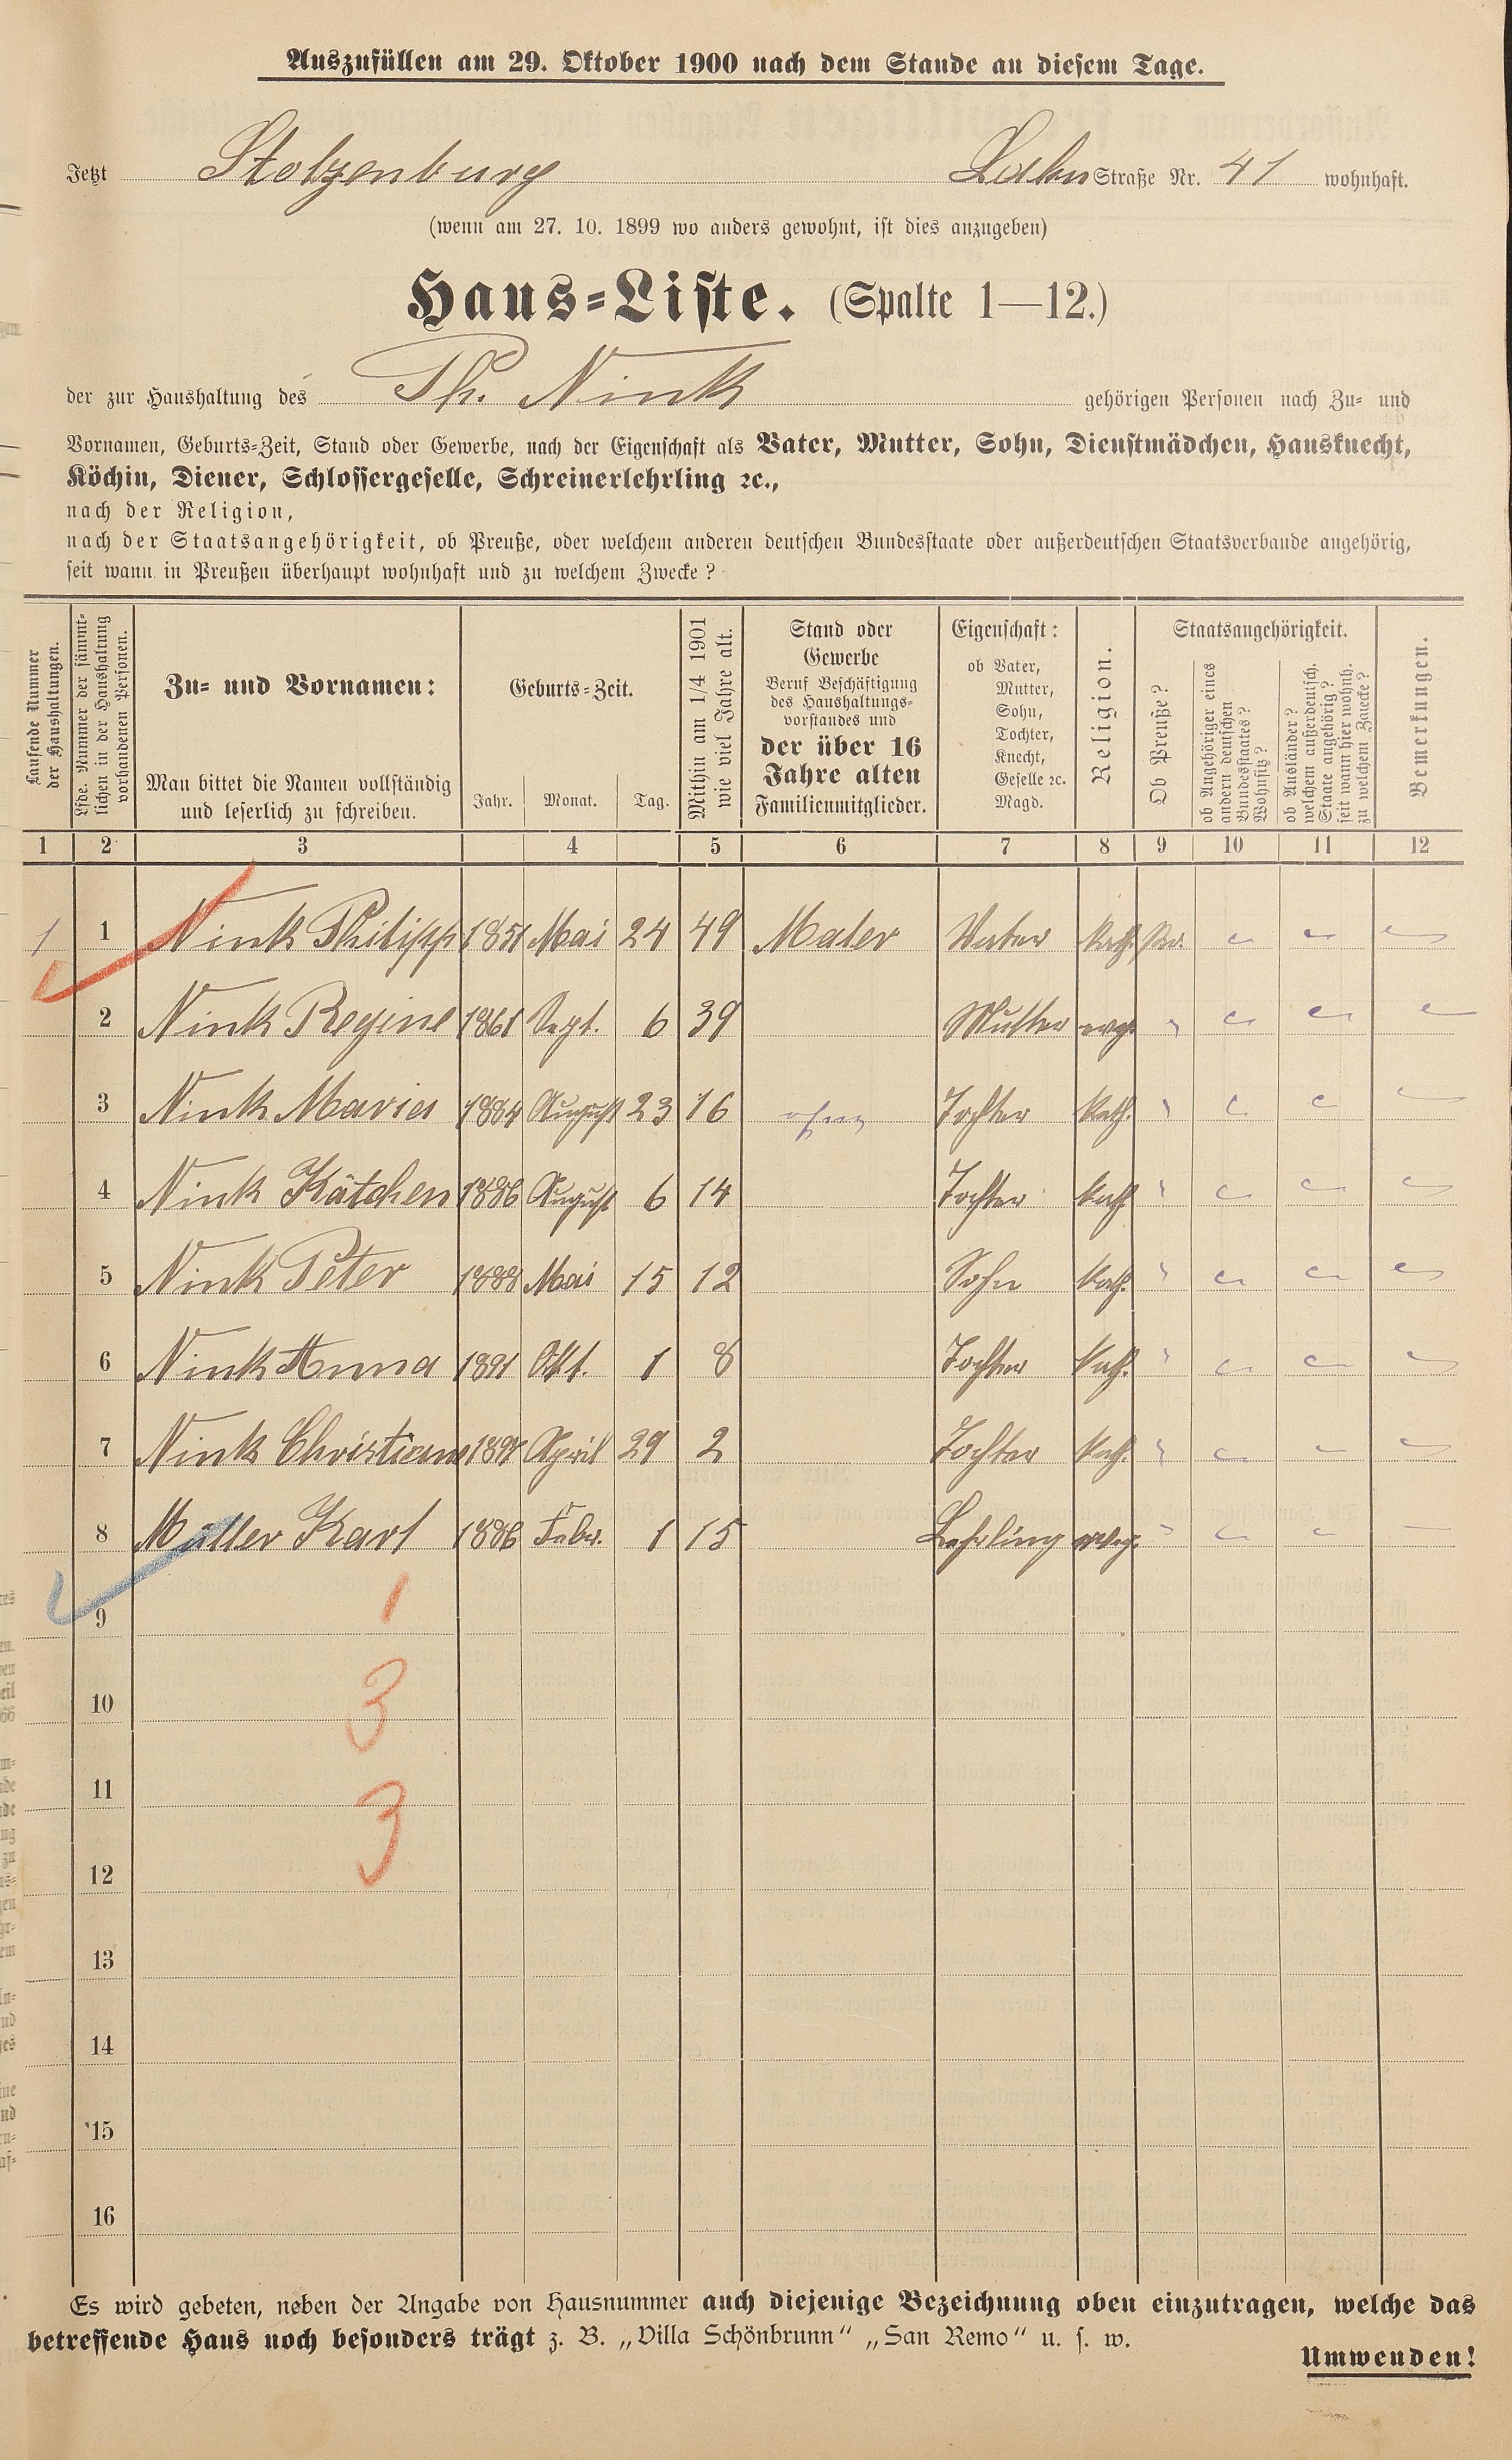 Auszufüllen am 29. Oktober 1900 nach dem Stande an diesem Tage.
Jetzt Stolzenburg Lahn Straße Nr. 41 wohnhaft.
(wenn am 27. 10. 1899 wo anders gewohnt, ist dies anzugeben)
Haus-Liste. (Spalte 1—12.)
der zur Haushaltung des Ph. Nink gehörigen Personen nach Zu- und
Vornamen, Geburts-Zeit, Stand oder Gewerbe, nach der Eigenschaft als Vater, Mutter, Sohn, Dienstmädchen, Hausknecht,
Köchin, Diener, Schlossergeselle, Schreinerlehrling ꝛc.,
nach der Religion,
nach der Staatsangehörigkeit, ob Preuße, oder welchem anderen deutschen Bundesstaate oder außerdeutschen Staatsverbande angehörig,
seit wann in Preußen überhaupt wohnhaft und zu welchem Zwecke?
Laufende Nummer
der Haushaltungen.
Lfde. Nummer der sämmt-
lichen in der Haushaltung
vorhandenen Personen.
Zu- und Vornamen:
Man bittet die Namen vollständig
und leserlich zu schreiben.
Geburts-Zeit.
Jahr. Monat. Tag.
Mithin am 1/4 1901
wie viel Jahre alt.
Stand oder
Gewerbe
Beruf Beschäftigung
des Haushaltungs-
vorstandes und
der über 16
Jahre alten
Familienmitglieder.
Eigenschaft:
ob Vater,
Mutter,
Sohn,
Tochter,
Knecht,
Geselle ꝛc.
Magd.
Religion.
Staatsangehörigkeit.
Ob Preuße?
ob Angehöriger eines
andern deutschen
Bundesstaates?
Wohnsitz?
ob Ausländer?
welchem außerdeutsch.
Staate angehörig?
seit wann hier wohnh.
zu welchem Zwecke?
Bemerkungen.
1 2 3 4 5 6 7 8 9 10 11 12
1 1 Nink Philipp 1851 Mai 24 49 Maler Vater kath. Pr.
2 Nink Regine 1861 Sept. 6 39 Mutter evgl.
3 Nink Maria 1884 August 23 16 ohne Tochter kath.
4 Nink Kätchen 1886 August 6 14 Tochter kath
5 Nink Peter 1888 Mai 15 12 Sohn kath.
6 Nink Anna 1891 Okt. 1 8 Tochter kath.
7 Nink Christiane 1898 April 29 2 Tochter kath.
8 Müller Karl 1886 Febr. 1 15 Lehrling
9 1
10 3
11
3
12
13
14
15
16
Es wird gebeten, neben der Angabe von Hausnummer auch diejenige Bezeichnung oben einzutragen, welche das
betreffende Haus noch besonders trägt z. B. „Villa Schönbrunn“ „San Remo“ u. s. w.
Umwenden!